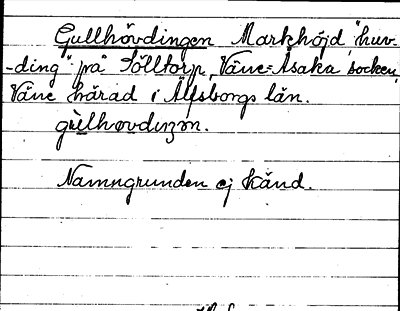 Gullhövdingen Markhöjd, "huv-
-ding" på Sölltorp, Väne-Åsaka socken,
Väne härad i Älfsborgs län.
Namngrunden ej känd.